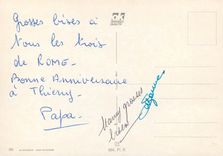 Grosses bises à
Vous les trois
de ROME.
Bonne Anniversaire
à Thierry
Papa
Mamy grosses
bises